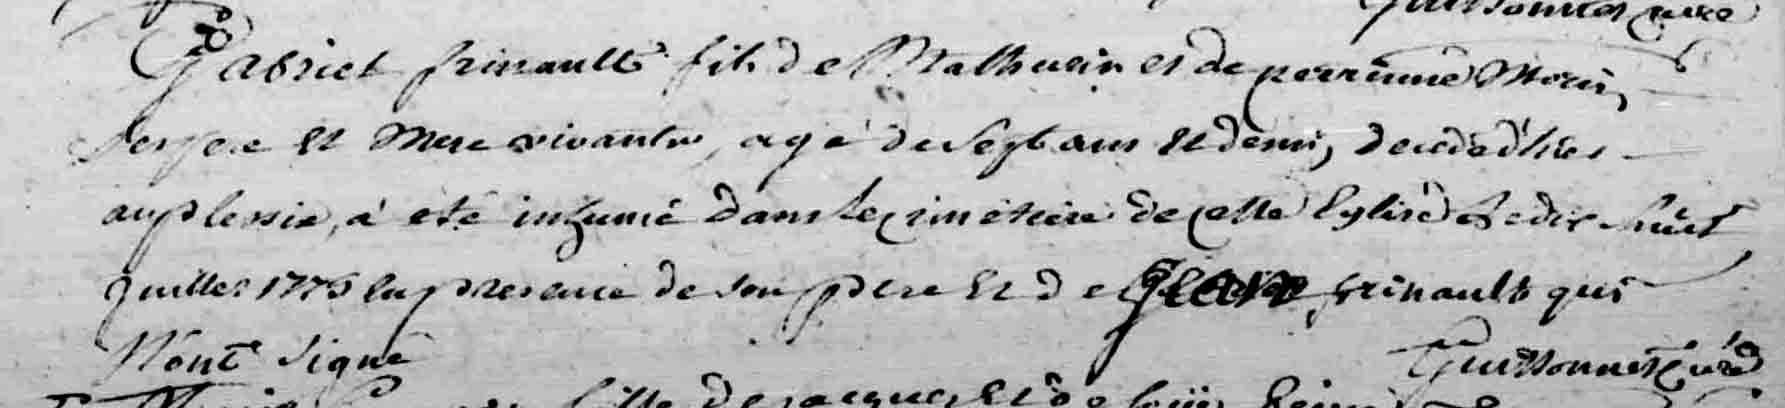 Guissonnet curé
Gabriel frinault fils de Mathurin et de perrinne Morin,
ses pere et Mere vivants, agé de sept ans et demi, decedé d'hier
au plessix, a eté inhumé dans le cimetiere de cette Eglise le dix huit
juillet 1775 en presence de son pere et de jean frinault qui
N'ont signé
Guissonnet Curé
fille de jacques Et de